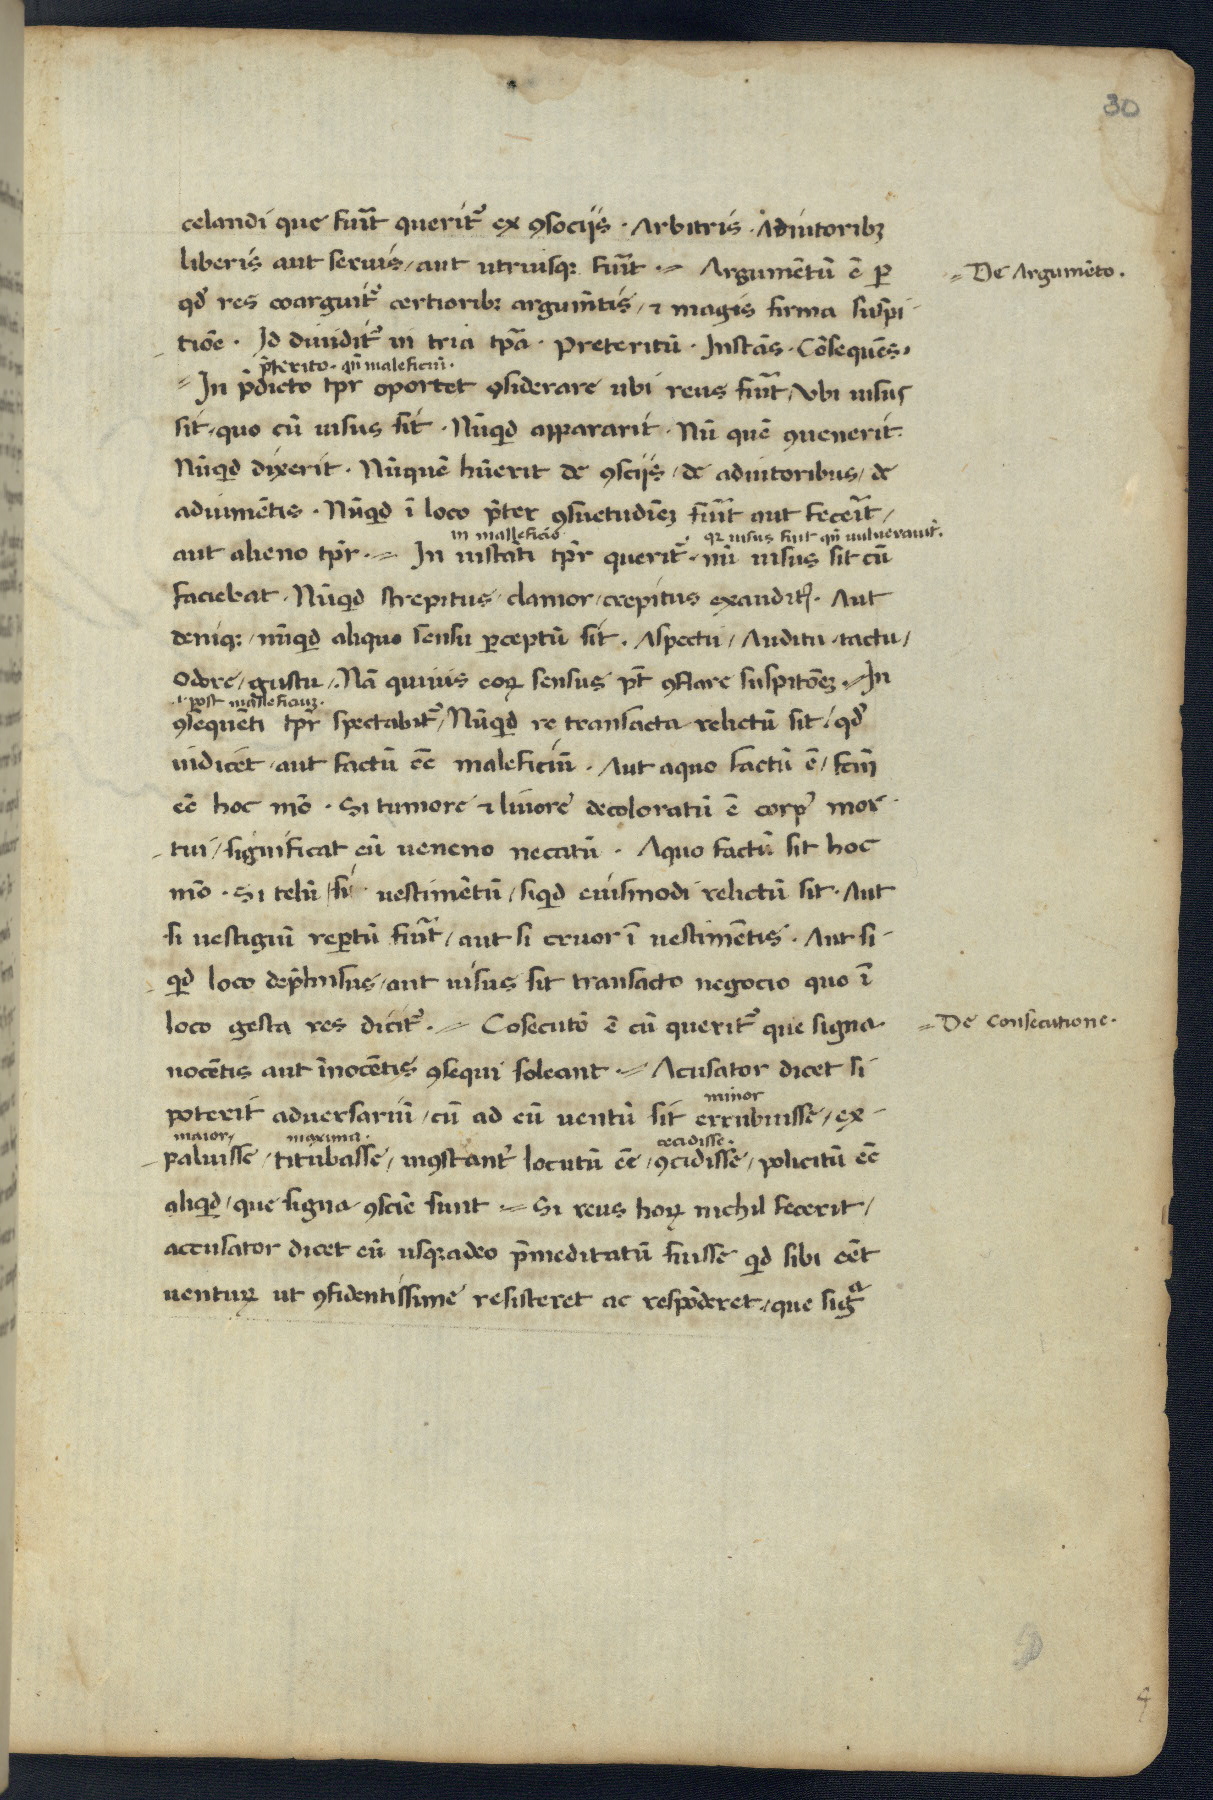 30
celandi que fuĩt querit᷑ ex ꝯsocijs · Arbitris · Adiutoribꝫ
liberis aut seruis / aut utriusqꝫ fuĩt · Argumẽtũ ẽ ꝑ
De Argumẽto .
qđ res coarguit᷑ certioribꝫ argum̃tis / ⁊ magis firma suspi
tiõe · Id diuidit᷑ in tria tp̃a · Preteritũ · Instãs · Cõsequẽs ·
p̃terito · qñ maleficiũ ·
In p̃dicto tpr̃ oportet ꝯsiderare ubi reus fuĩt / Vbi uisus
sit / quo cũ uisus sit · Nũqđ appararit · Nũ quẽ ꝯuenerit
Nũqđ dixerit · Nũquẽ hũerit de ꝯscijs / de adiutoribus / de
adiumẽtis · Nũqđ ĩ loco p̃ter ꝯsuetudĩeꝫ fuĩt aut feceĩt /
in malleficio
qꝫ uisus fuit qñ uulnerauit᷑ .
aut alieno tpr̃ · In instãti tpr̃ querit᷑ · nũ uisus sit cũ
faciebat · Nũqđ strepitus / clamor / crepitus exauditꝰ · Aut
deniqꝫ / nũqđ aliquo sensu ꝑceptũ sit · Aspectu / Auditu / tactu /
Odore / gustu / Nã quiuis eoꝝ sensus pt̃ ꝯflare suspitõeꝫ · In
.i. post malleficiuꝫ .
ꝯsequẽti tpr̃ spectabit᷑ / Nũqđ re transacta relictũ sit / qđ
indicet / aut factũ eẽ maleficiũ · Aut aquo factũ ẽ / fcm̃
eẽ hoc mõ · Si tumore ⁊ liuore decoloratũ ẽ corpꝰ mor
tui / significat eũ ueneno necatũ · Aquo factũ sit hoc
mõ · Si telũ / si uestimẽtũ / siqđ eiusmodi relictũ sit · Aut
si uestigiũ reꝑtũ fuĩt / aut si cruor ĩ uestimẽtis · Aut si
qđ loco dep̃hensus / aut uisus sit transacto negocio quo ĩ
loco gesta res dicit᷑ · Cosecutõ ẽ cũ querit᷑ que signa
De Consecutione .
nocẽtis aut ĩnocẽtis ꝯsequi soleant · Acusator dicet si
minor
poterit aduersariũ / cũ ad eũ uentũ sit errubuisse / ex
maior / maxima . cecidisse .
paluisse / titubasse / inꝯstant᷑ locutũ eẽ / ꝯcidisse / policitũ eẽ
aliqđ / que signa ꝯsciẽ sunt · Si reus hoꝝ nichil fecerit /
accusator dicet eũ usqꝫadeo p̃meditatũ fuisse qđ sibi eẽt
uentuꝝ ut ꝯfidentissime resisteret ac respõderet / que sigᵃ